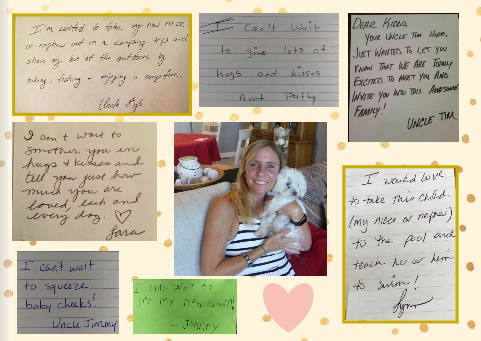 I'm excited to take my new niece
or nephew out on a camping trip and
share my love of the outdoors by
hiking, fishing + enjoying a campfire.
Uncle
I Can't Wait
to give lots of
hugs and kisses
Aunt Patty
DEAR KIDDO,
YOUR UNCLE TIM HERE,
JUST WANTED TO LET YOU
KNOW THAT WE ARE TOTALLY
EXCITED TO MEET YOU AND
INVITE YOU INTO THIS AWESOME
FAMILY!
UNCLE TIM
I can't wait to
smother you in
hugs & kisses and
tell you just how
much you are
loved, each and
every day. ♡
Sara
I would love
to take this child
(my niece or nephew)
to the pool and
teach her or him
to swim!
Lynn
I cant wait
to squeeze
baby cheeks!
Uncle Jimmy
I can't wait to
see my
- Johnny